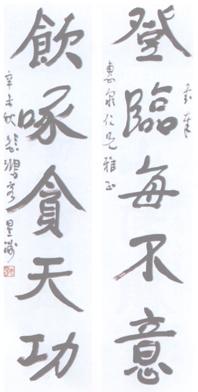 登臨每不意
惠泉仁兄雅正
飲啄貪天功
辛未秋